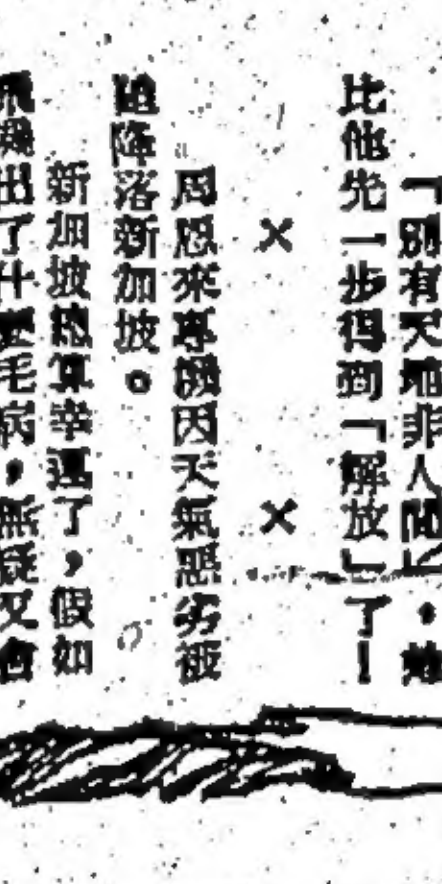 「別有天地非人間」，她
比他先一步得到「解放」了！
×　×
周恩來專機因天氣惡劣被
迫降落新加坡。
新加坡總算幸運了，假如
飛機出了什麼毛病，無疑又會